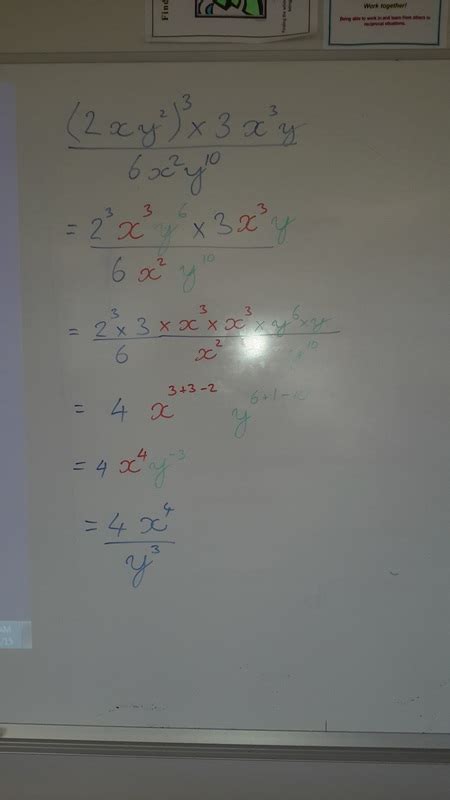 Find
Work together!
Being able to work in and learn from others in
reciprocal situations.
(2xy²)³ × 3x³y
6x²y¹⁰
= 2³x³y⁶ × 3x³y
6x²y¹⁰
= 2³ × 3 × x³ × x³ × y⁶ × y
6 x² y¹⁰
= 4 x³⁺³⁻² y⁶⁺¹⁻
= 4x⁴y⁻³
= 4x⁴
y³